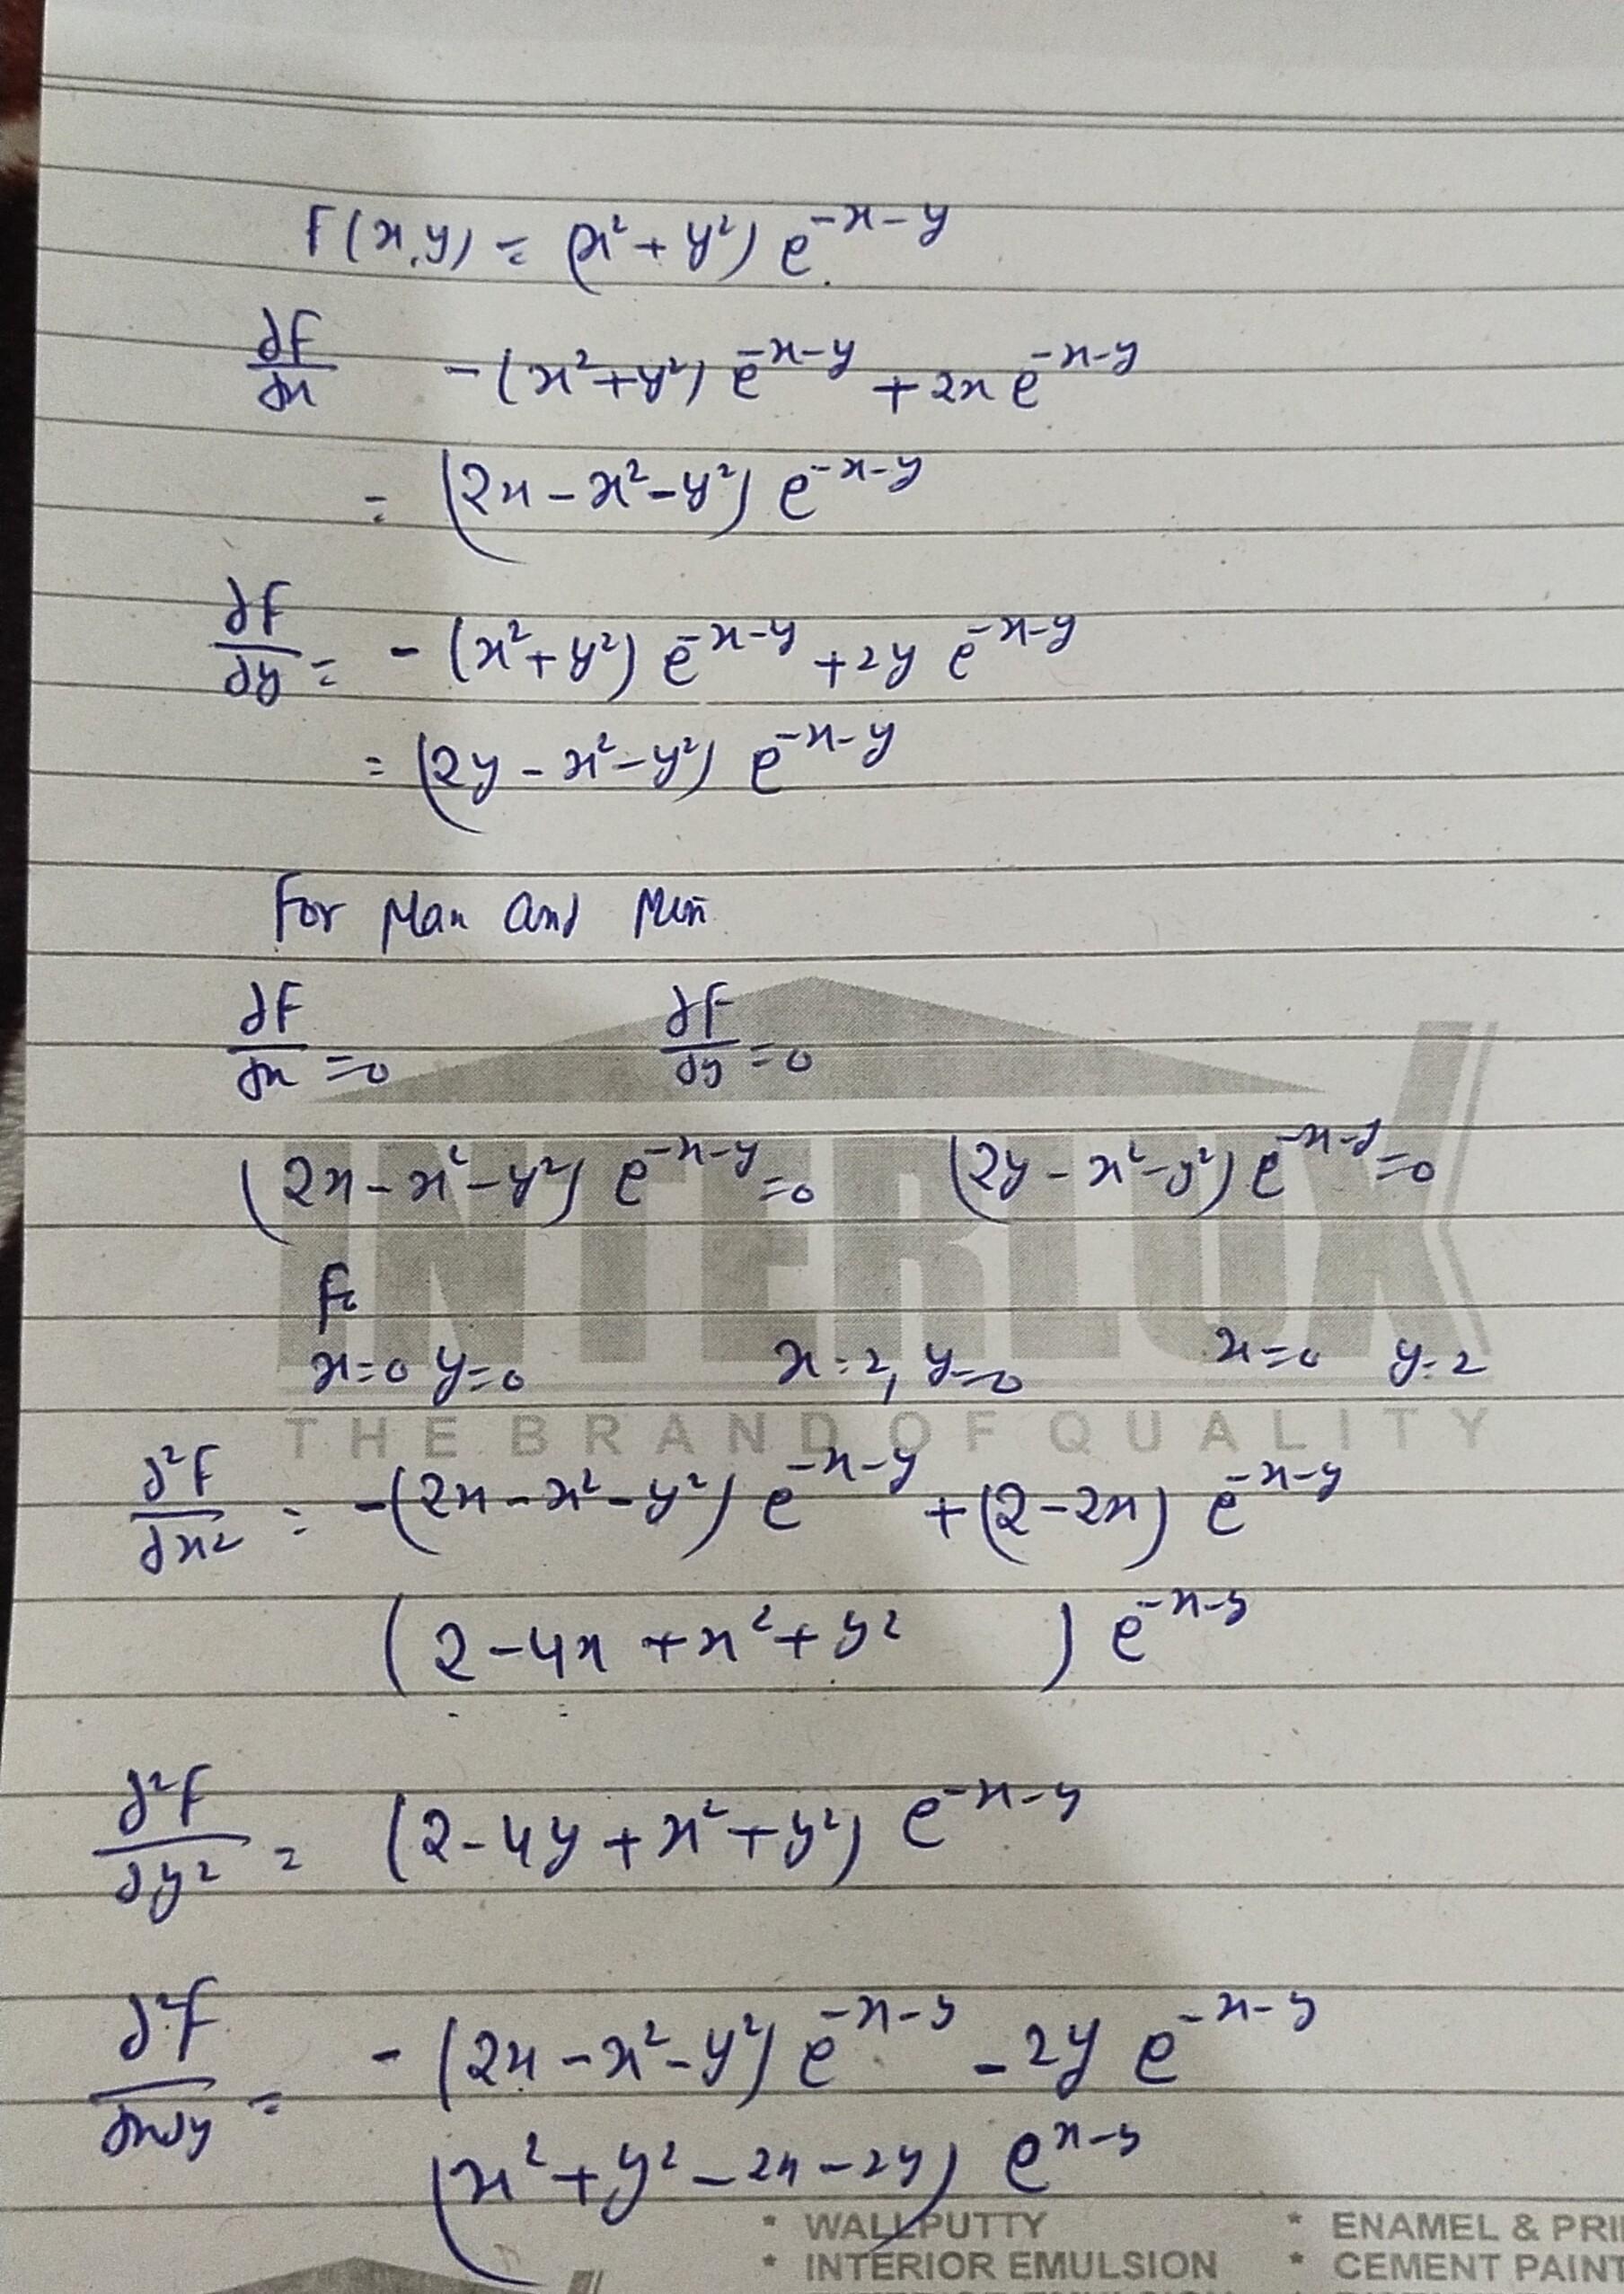 F(x,y) = (x² + y²) e^{-x-y}
∂F/∂x -(x²+y²) e^{-x-y} + 2x e^{-x-y}
= (2x - x² - y²) e^{-x-y}
∂F/∂y = - (x²+y²) e^{-x-y} + 2y e^{-x-y}
= (2y - x² - y²) e^{-x-y}
For Max and Min
∂F/∂x = 0 ∂F/∂y = 0
(2x - x² - y²) e^{-x-y} = 0 (2y - x² - y²) e^{-x-y} = 0
INTERLUX
x=0 y=0 x=2, y=0 x=0 y=2
THE BRAND OF QUALITY
∂²F/∂x² = -(2x - x² - y²) e^{-x-y} + (2-2x) e^{-x-y}
(2 - 4x + x² + y² ) e^{-x-y}
∂²F/∂y² = (2 - 4y + x² + y²) e^{-x-y}
∂²F/∂x∂y = - (2x - x² - y²) e^{-x-y} - 2y e^{-x-y}
(x² + y² - 2x - 2y) e^{x-y}
* WALLPUTTY * ENAMEL & PRI
* INTERIOR EMULSION * CEMENT PAINT